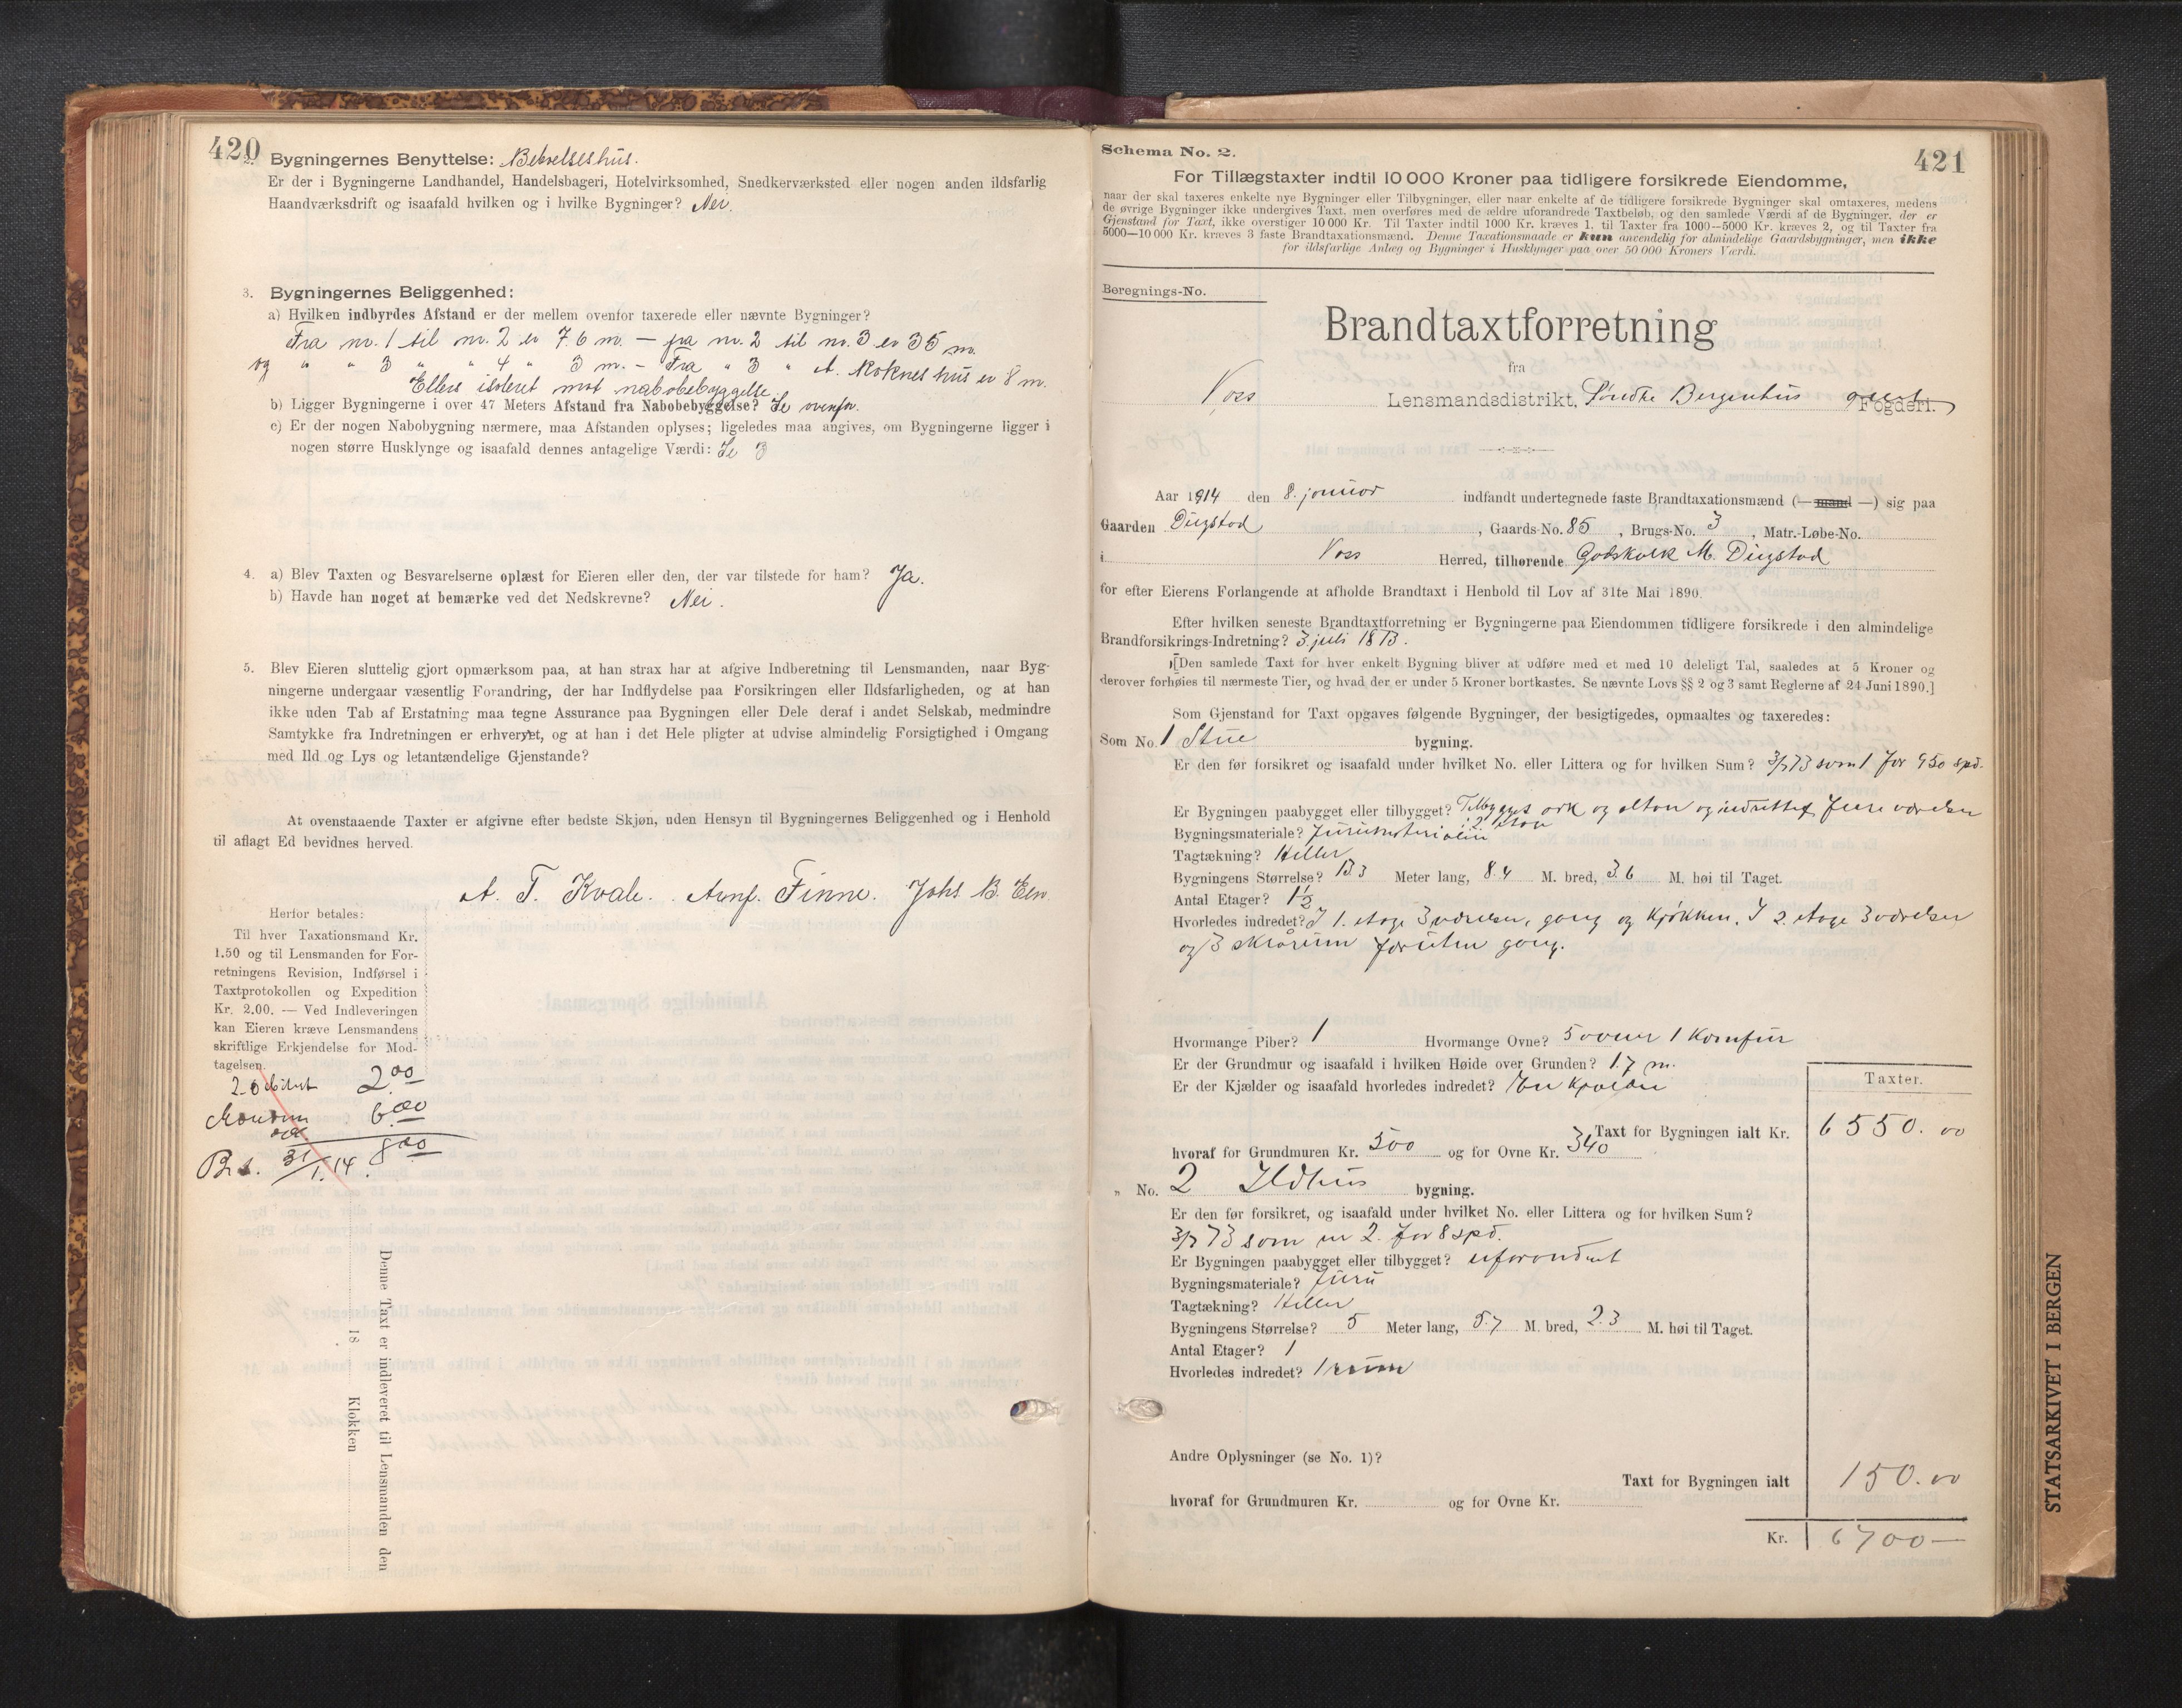 420
2. Bygningernes Benyttelse: Beboelseshus.
Er der i Bygningerne Landhandel, Handelsbageri, Hotelvirksomhed, Snedkerværksted eller nogen anden ildsfarlig
Haandværksdrift og isaafald hvilken og i hvilke Bygninger? Nei.
3. Bygningernes Beliggenhed:
a) Hvilken indbyrdes Afstand er der mellem ovenfor taxerede eller nævnte Bygninger?
Fra nr. 1 til nr. 2 er 7.6 m. — fra nr. 2 til nr. 3 er 35 m.
og " " 3 " " 4 " 3 m. — Fra " 3 " A. Rokneshus er 8 m.
Ellers isoleret mot nabobebyggelse
b) Ligger Bygningerne i over 47 Meters Afstand fra Nabobebyggelse? Se ovenfor.
c) Er der nogen Nabobygning nærmere, maa Afstanden oplyses; ligeledes maa angives, om Bygningerne ligger i
nogen større Husklynge og isaafald dennes antagelige Værdi: Se 3
4. a) Blev Taxten og Besvarelserne oplæst for Eieren eller den, der var tilstede for ham? Ja.
b) Havde han noget at bemærke ved det Nedskrevne? Nei.
5. Blev Eieren sluttelig gjort opmærksom paa, at han strax har at afgive Indberetning til Lensmanden, naar Byg-
ningerne undergaar væsentlig Forandring, der har Indflydelse paa Forsikringen eller Ildsfarligheden, og at han
ikke uden Tab af Erstatning maa tegne Assurance paa Bygningen eller Dele deraf i andet Selskab, medmindre
Samtykke fra Indretningen er erhvervet, og at han i det Hele pligter at udvise almindelig Forsigtighed i Omgang
med Ild og Lys og letantændelige Gjenstande?
At ovenstaaende Taxter er afgivne efter bedste Skjøn, uden Hensyn til Bygningernes Beliggenhed og i Henhold
til aflagt Ed bevidnes herved.
A. T. Kvale. Arnf. Finne. Johs B. Elv
Herfor betales:
Til hver Taxationsmand Kr.
1.50 og til Lensmanden for For-
retningens Revision, Indførsel i
Taxtprotokollen og Expedition
Kr. 2.00. — Ved Indleveringen
kan Eieren kræve Lensmandens
skriftlige Erkjendelse for Mod-
tagelsen.
2.00
6.00
8.00
31/1. 14.
Denne Taxt er indleveret til Lensmanden den
18 Klokken
Schema No. 2.
421
For Tillægstaxter indtil 10 000 Kroner paa tidligere forsikrede Eiendomme,
naar der skal taxeres enkelte nye Bygninger eller Tilbygninger, eller naar enkelte af de tidligere forsikrede Bygninger skal omtaxeres, medens
de øvrige Bygninger ikke undergives Taxt, men overføres med de ældre uforandrede Taxtbeløb, og den samlede Værdi af de Bygninger, der er
Gjenstand for Taxt, ikke overstiger 10 000 Kr. Til Taxter indtil 1000 Kr. kræves 1, til Taxter fra 1000—5000 Kr. kræves 2, og til Taxter fra
5000—10 000 Kr. kræves 3 faste Brandtaxationsmænd. Denne Taxationsmaade er kun anvendelig for almindelige Gaardsbygninger, men ikke
for ildsfarlige Anlæg og Bygninger i Husklynger paa over 50 000 Kroners Værdi.
Beregnings-No.
Brandtaxtforretning
fra
Voss Lensmandsdistrikt, Søndre Bergenhus Fogderi.
Aar 1914 den 8. januar indfandt undertegnede faste Brandtaxationsmænd (— mand —) sig paa
Gaarden Dugstad, Gaards-No. 85, Brugs-No. 3, Matr.-Løbe-No.
i Voss Herred, tilhørende Godskalk M. Dugstad
for efter Eierens Forlangende at afholde Brandtaxt i Henhold til Lov af 31te Mai 1890.
Efter hvilken seneste Brandtaxtforretning er Bygningerne paa Eiendommen tidligere forsikrede i den almindelige
Brandforsikrings-Indretning? 3. juli 1873.
[Den samlede Taxt for hver enkelt Bygning bliver at udføre med et med 10 deleligt Tal, saaledes at 5 Kroner og
derover forhøies til nærmeste Tier, og hvad der er under 5 Kroner bortkastes. Se nævnte Lovs §§ 2 og 3 samt Reglerne af 24 Juni 1890.]
Som Gjenstand for Taxt opgaves følgende Bygninger, der besigtigedes, opmaaltes og taxeredes:
Som No. 1 Stue bygning.
Er den før forsikret og isaafald under hvilket No. eller Littera og for hvilken Sum? 3/7 73 som 1 for 450 spd.
Er Bygningen paabygget eller tilbygget? Tilbygget ark og altan og indrettet flere værelser
i 2 etage
Bygningsmateriale? furumaterialier
Tagtækning? Heller
Bygningens Størrelse? 13.3 Meter lang, 8.4 M. bred, 3.6 M. høi til Taget.
Antal Etager? 1½
Hvorledes indredet? I 1. etage 3 værelser, gang og kjøkken. I 2. etage 3 værelser
og 3 skråerum foruten gang.
Hvormange Piber? 1 Hvormange Ovne? 5 ovner 1 komfur
Er der Grundmur og isaafald i hvilken Høide over Grunden? 1.7 m.
Er der Kjælder og isaafald hvorledes indredet? En kjælder
Taxter.
Taxt for Bygningen ialt Kr. 6550.00
hvoraf for Grundmuren Kr. 500 og for Ovne Kr. 340
" No. 2 Ildhus bygning.
Er den før forsikret, og isaafald under hvilket No. eller Littera og for hvilken Sum?
3/7 73 som nr 2. for 8 spd.
Er Bygningen paabygget eller tilbygget? uforandret
Bygningsmateriale? furu
Tagtækning? Heller
Bygningens Størrelse? 5 Meter lang, 5.7 M. bred, 2.3 M. høi til Taget.
Antal Etager? 1
Hvorledes indredet? 1 rum
Andre Oplysninger (se No. 1)?
Taxt for Bygningen ialt 150.00
hvoraf for Grundmuren Kr. og for Ovne Kr.
Kr. 6700—
STATSARKIVET I BERGEN